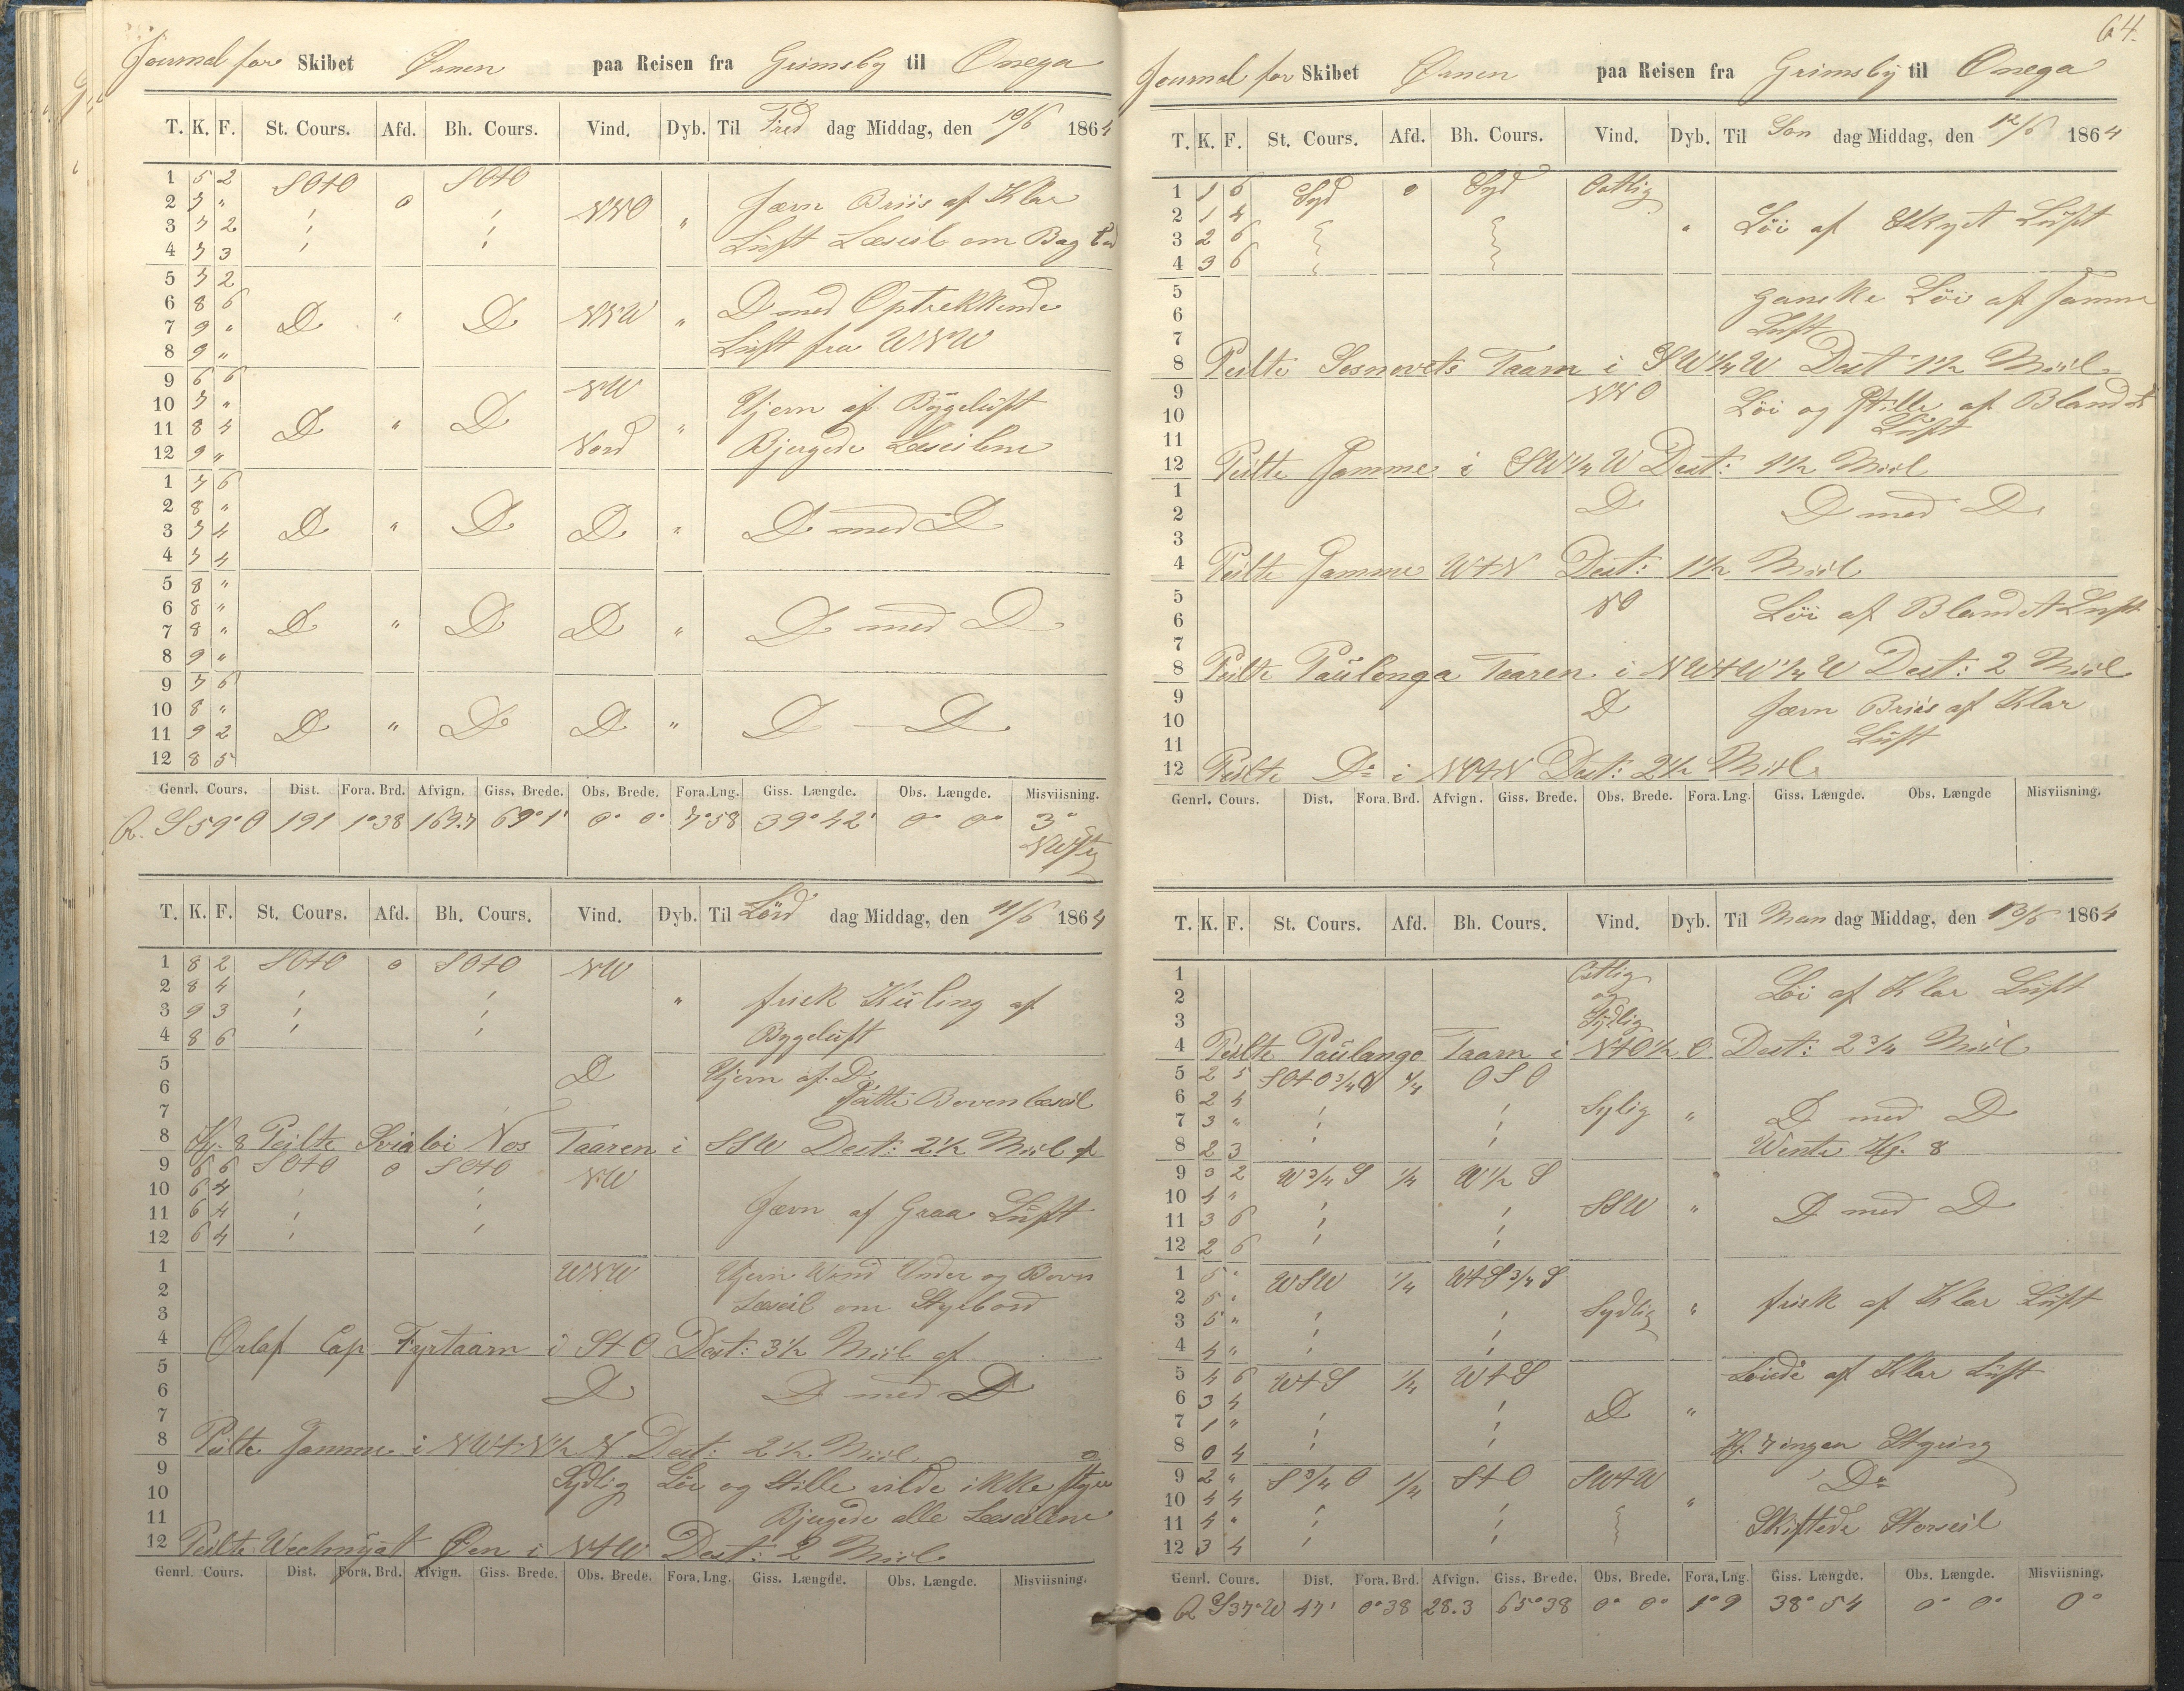 Journal for Skibet Ørnen paa Reisen fra Grimsby til Onega
T. K. F. St. Cours. Afd. Bh. Cours. Vind. Dyb. Til Fred dag Middag, den 10/6 1864
1 5 2 SOtO SOtO
2 7 " 0 NNO " Jævn Briis af Klar
3 7 2
4 7 3 Luft Læseil om Bag bord
5 7 2
6 8 6 D " D NNW " D med Optrekkende
7 9 "
8 9 " Luft fra WNW
9 6 6 NW
10 7 " Stjern af Bÿgeluft
11 8 4 D " D "
12 9 " Nord Bjergede Læseilene
1 7 6
2 8 "
3 7 4 D " D D " D med D
4 7 4
5 8 "
6 8 "
7 8 " D " D D " D med D
8 9 "
9 7 6
10 8 "
11 9 2 D " D D " D — D
12 8 5
Genrl. Cours. Dist. Fora. Brd. Afvign. Giss. Brede. Obs. Brede. Fora. Lng. Giss. Længde. Obs. Længde. Misviisning.
R. S 59° O 191 1°38 163.7 69°1' 0° 0° 7°58 39°42' 0° 0° 3°
NWstg
T. K. F. St. Cours. Afd. Bh. Cours. Vind. Dyb. Til Lörd dag Middag, den 11/6 1864
1 8 2 SOtO 0 SOtO NW
2 8 4 " frisk Kuling af
3 9 3
4 8 6 Bygeluft
5 D Stjern af D
6 Satte Boven læseil
7
8 Kl. 8 Peilte Sviatoi Nos Taaren i SSW Dest: 2½ Miil af
9 6 6 SOtO 0 SOtO NW
10 6 4
11 6 4 Jævn af Graa Luft
12 6 4
1 WNW Stjern Wind Under og Boven
2 Læseil om Styrbord
3
4 Orlof Cap Fyrtaarn i StO Dest: 3½ Miil af
5
6 D D med D
7
8 Peilte Samme i NWtN½N Dest: 2½ Miil
9 Sydlig Löi og Stille vilde ikke styre
10
11 Bjergede alle Læseilene
12 Peilte Øen i NtW Dest: 2 Miil
Genrl. Cours. Dist. Fora. Brd. Afvign. Giss. Brede. Obs. Brede. Fora. Lng. Giss. Længde. Obs. Længde. Misviisning.
64.
Journal for Skibet Ørnen paa Reisen fra Grimsbÿ til Onega
T. K. F. St. Cours. Afd. Bh. Cours. Vind. Dyb. Til Son dag Middag, den 12/6 1864
1 1 6 Syd 0 Syd Ostlig
2 1 4
3 2 6 " Löi af Skyet Luft
4 3 6
5 ganske Löi af samme
6
7 Luft
8 Peilte Sosnovets Taarn i SW¼W Dest 1½ Miil
9 NNO Löi og Stille af Blandet
10
11 Luft
12 Peilte Samme i SW¼W Dest: 1½ Miil
1 D D med D
2
3
4 Peilte Samme WtN Dest: 1½ Miil
5 NO Löi af Blandet Luft
6
7
8 Peilte Paulonga Taaren i NWtW¼W Dest: 2 Miil
9 D Jævn Briis af Klar
10
11 Luft
12 Peilte Do i NOtN Dest: 2½ Miil
Genrl. Cours. Dist. Fora. Brd. Afvign. Giss. Brede. Obs. Brede. Fora. Lng. Giss. Længde. Obs. Længde Misviisning.
T. K. F. St. Cours. Afd. Bh. Cours. Vind. Dyb. Til Man dag Middag, den 13/6 1864
1 Ostlig
2 og Löi af Klar Luft
3 Sydlig
4 Peilte Paulango Taarn i NtO½O Dest: 2¾ Miil
5 2 5 SOtO¾O ¼ OSO
6 2 4 Sylig " D med D
7 3 "
8 2 3 Wente Kl. 8
9 3 2 W¾S ¼ W½S
10 4 " SSW " D med D
11 3 6
12 2 6
1 5 " WSW ¼ WtS¾S
2 5 " Sydlig " frisk af Klar Luft
3 5 "
4 4 "
5 4 6 WtS ¼ WtS Löiede af Klar Luft
6 3 4 D "
7 1 "
8 0 4 Kl. 7 ingen Styring
9 2 " S¾O ¼ StO SWtW Do
10 4 4 "
11 4 " Skiftede Storseil
12 3 4
Genrl. Cours. Dist. Fora. Brd. Afvign. Giss. Brede. Obs. Brede. Fora. Lng. Giss. Længde. Obs. Længde. Misviisning.
R S37°W 47' 0°38 28.3 65°38 0° 0° 1°9 38°54 0° 0° 0°